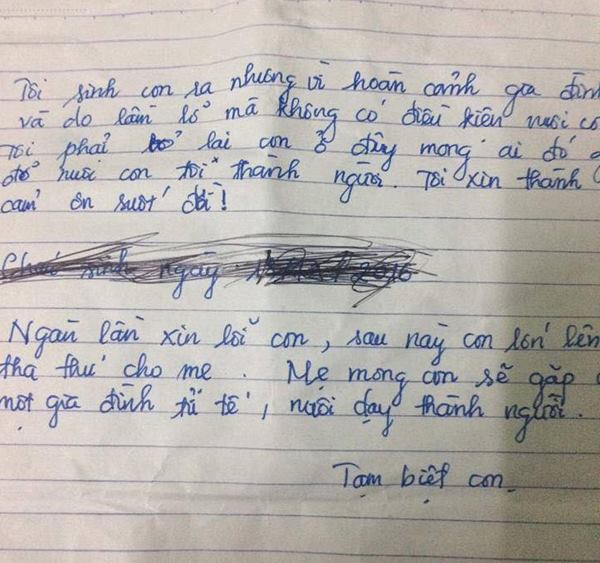 Tôi sinh con ra nhưng vì hoàn cảnh gia đình
và do lầm lỗ mà không có điều kiện nuôi co
Tôi phải bỏ lại con ở đây mong ai đó
đó nuôi con tôi thành người. Tôi xin thành
cảm ơn suốt đời!
Cháu sinh ngày 2016
Ngàn lần xin lỗi con, sau này con lớn lên
tha thứ cho mẹ. Mẹ mong con sẽ gặp
một gia đình tử tế, nuôi dạy thành người.
Tạm biệt con.